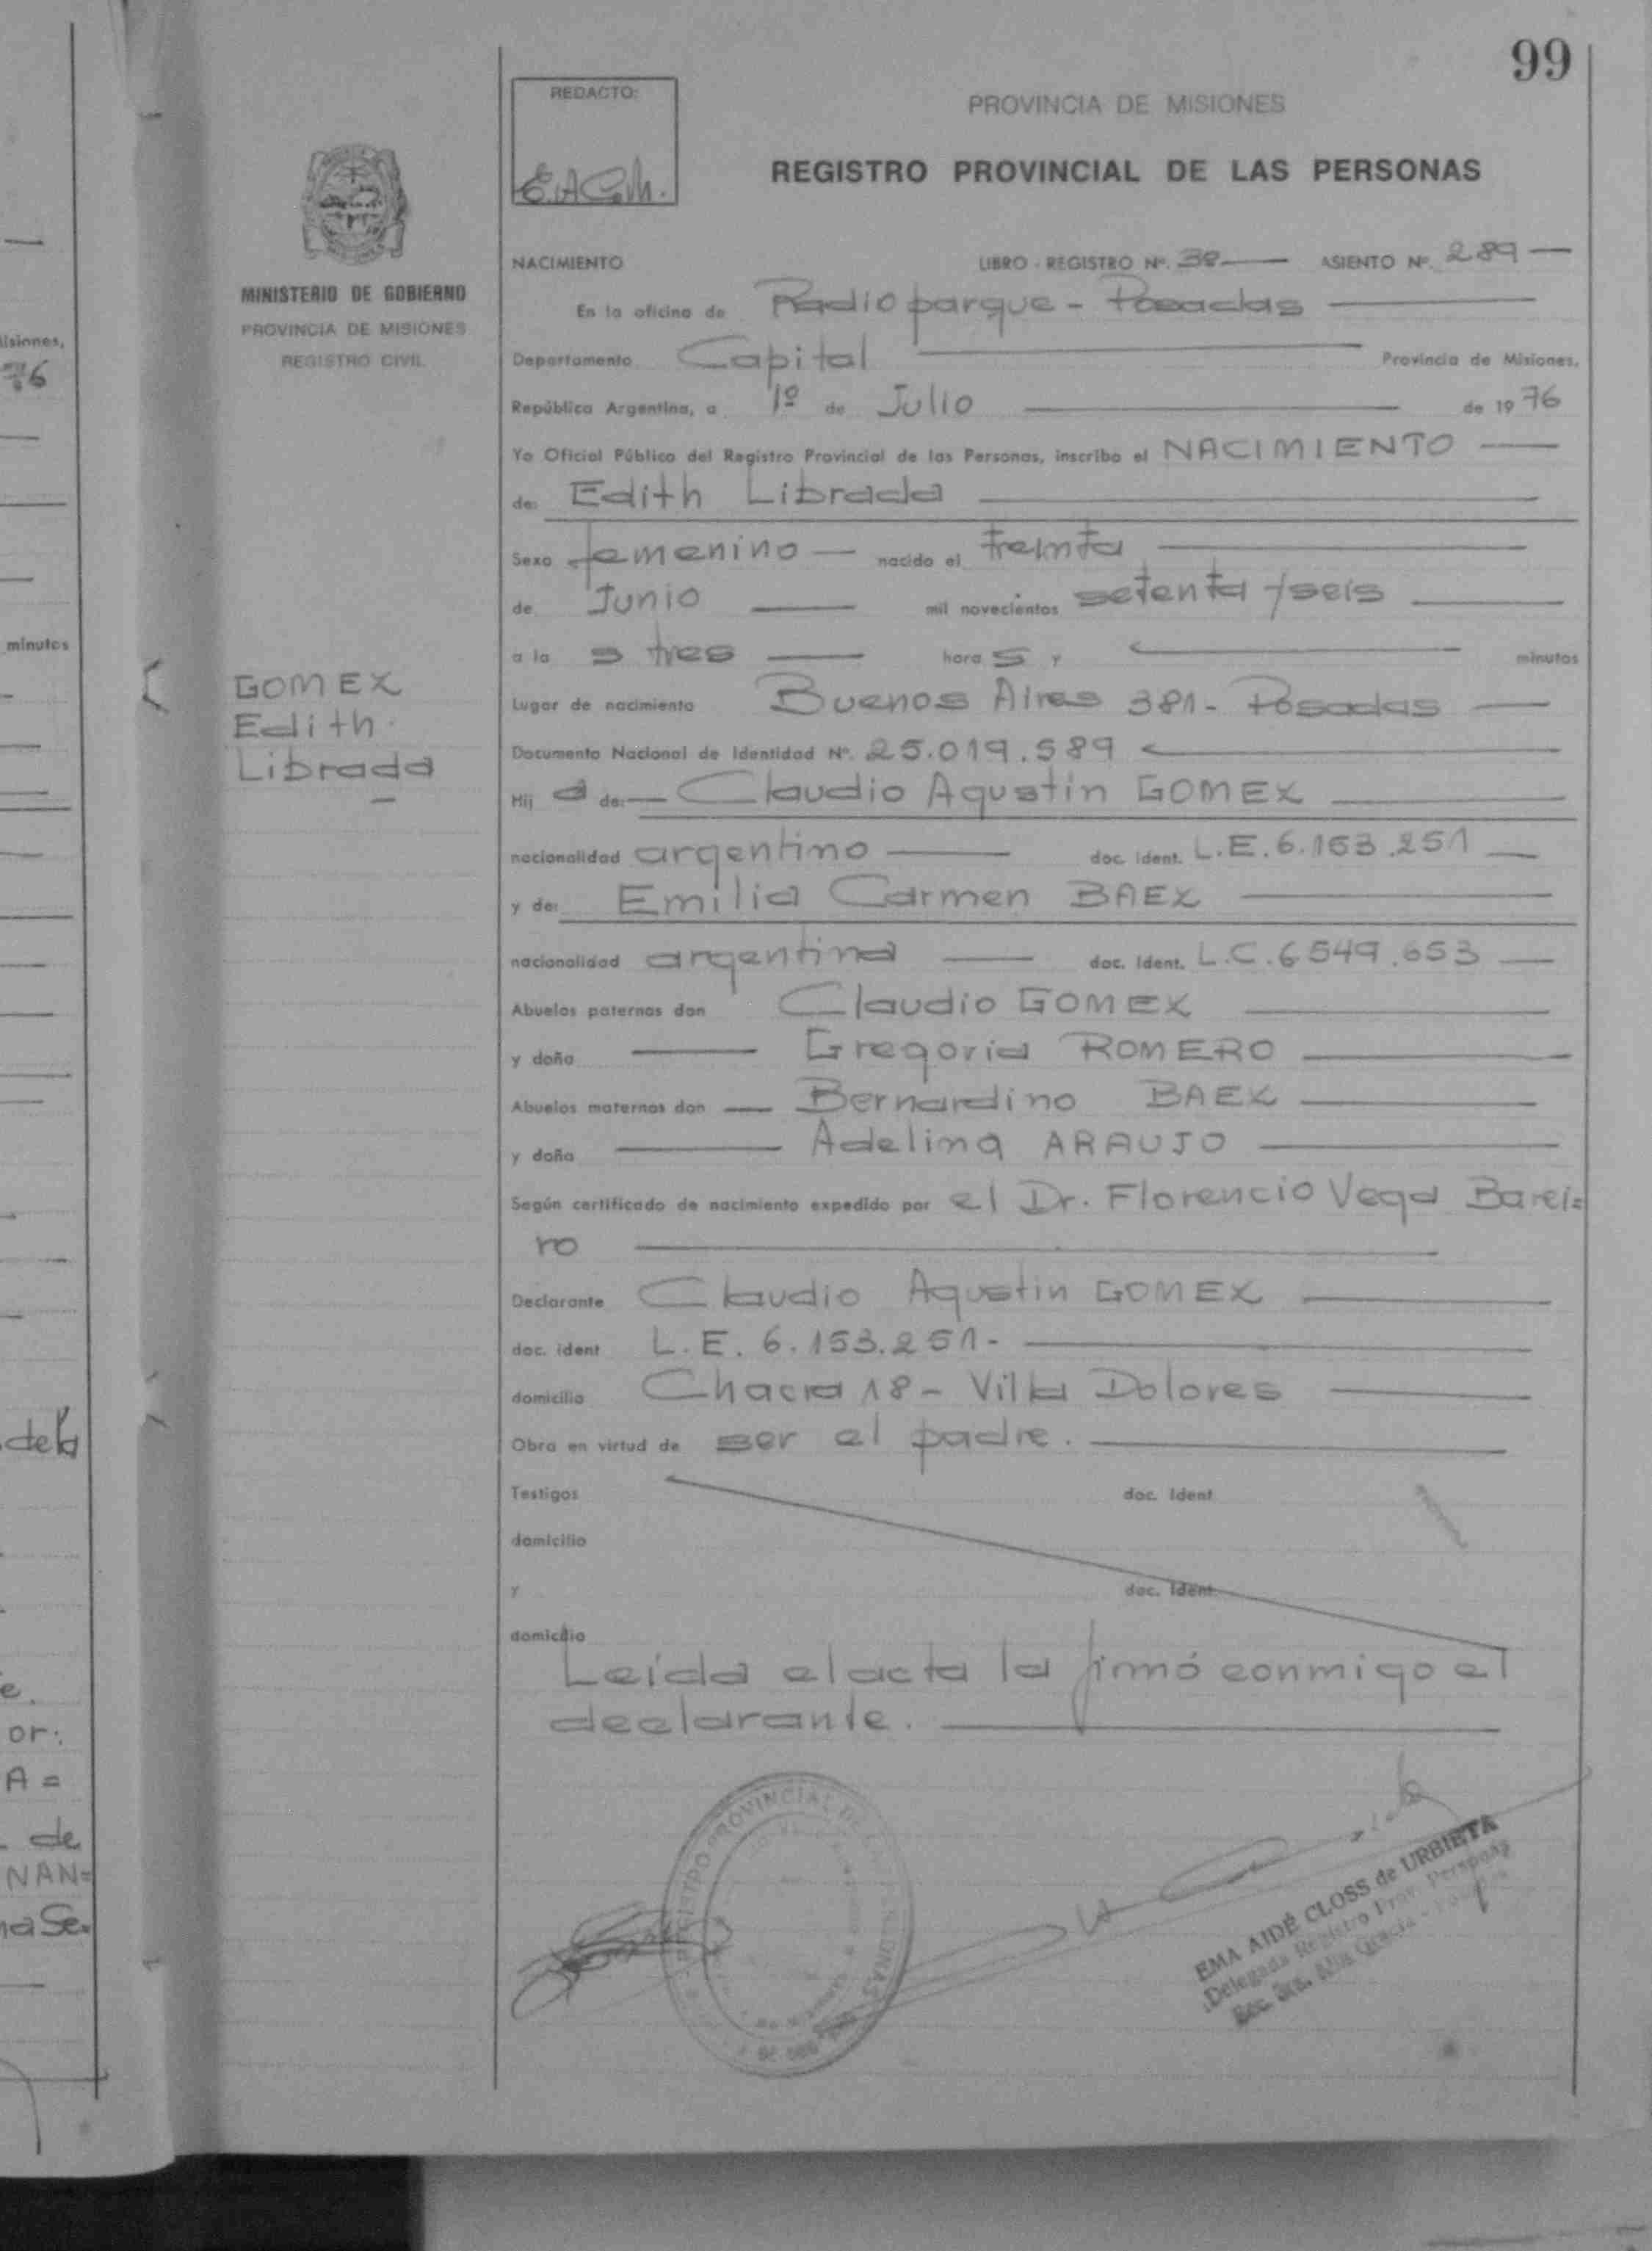 99
REDACTO:
E.A.C.M.
PROVINCIA DE MISIONES
REGISTRO PROVINCIAL DE LAS PERSONAS
MINISTERIO DE GOBIERNO
PROVINCIA DE MISIONES
REGISTRO CIVIL
GOMEZ
Edith
Librada
NACIMIENTO LIBRO - REGISTRO Nº. 38 ASIENTO Nº. 289
En la oficina de Radioparque - Posadas
Departamento Capital Provincia de Misiones,
República Argentina, a 1º de Julio de 1976
Yo Oficial Público del Registro Provincial de las Personas, inscribo el NACIMIENTO
de: Edith Librada
Sexo femenino nacido el treinta
de Junio mil novecientos setenta y seis
a la s tres hora s y minutos
Lugar de nacimiento Buenos Aires 381 - Posadas
Documento Nacional de Identidad Nº. 25.019.589
Hij a de: Claudio Agustin GOMEZ
nacionalidad argentino doc. ident. L.E. 6.153.251
y de: Emilia Carmen BAEZ
nacionalidad argentina doc. ident. L.C. 6549.653
Abuelos paternos don Claudio GOMEZ
y doña Gregoria ROMERO
Abuelos maternos don Bernardino BAEZ
y doña Adelina ARAUJO
Según certificado de nacimiento expedido por el Dr. Florencio Vega Barei=
ro
Declarante Claudio Agustin GOMEZ
doc. ident L.E. 6.153.251-
domicilio Chacra 18 - Villa Dolores
Obra en virtud de ser el padre.
Testigos doc. ident
domicilio
y doc. ident
domicilio
Leída el acta la firmó conmigo el
declarante.
REGISTRO PROVINCIAL DE
EMA AIDÉ CLOSS de URBIETA
Delegada Registro Prov. Personas
isiones,
76
minutos
de la
e.
or:
A =
de
NAN=
na Se.